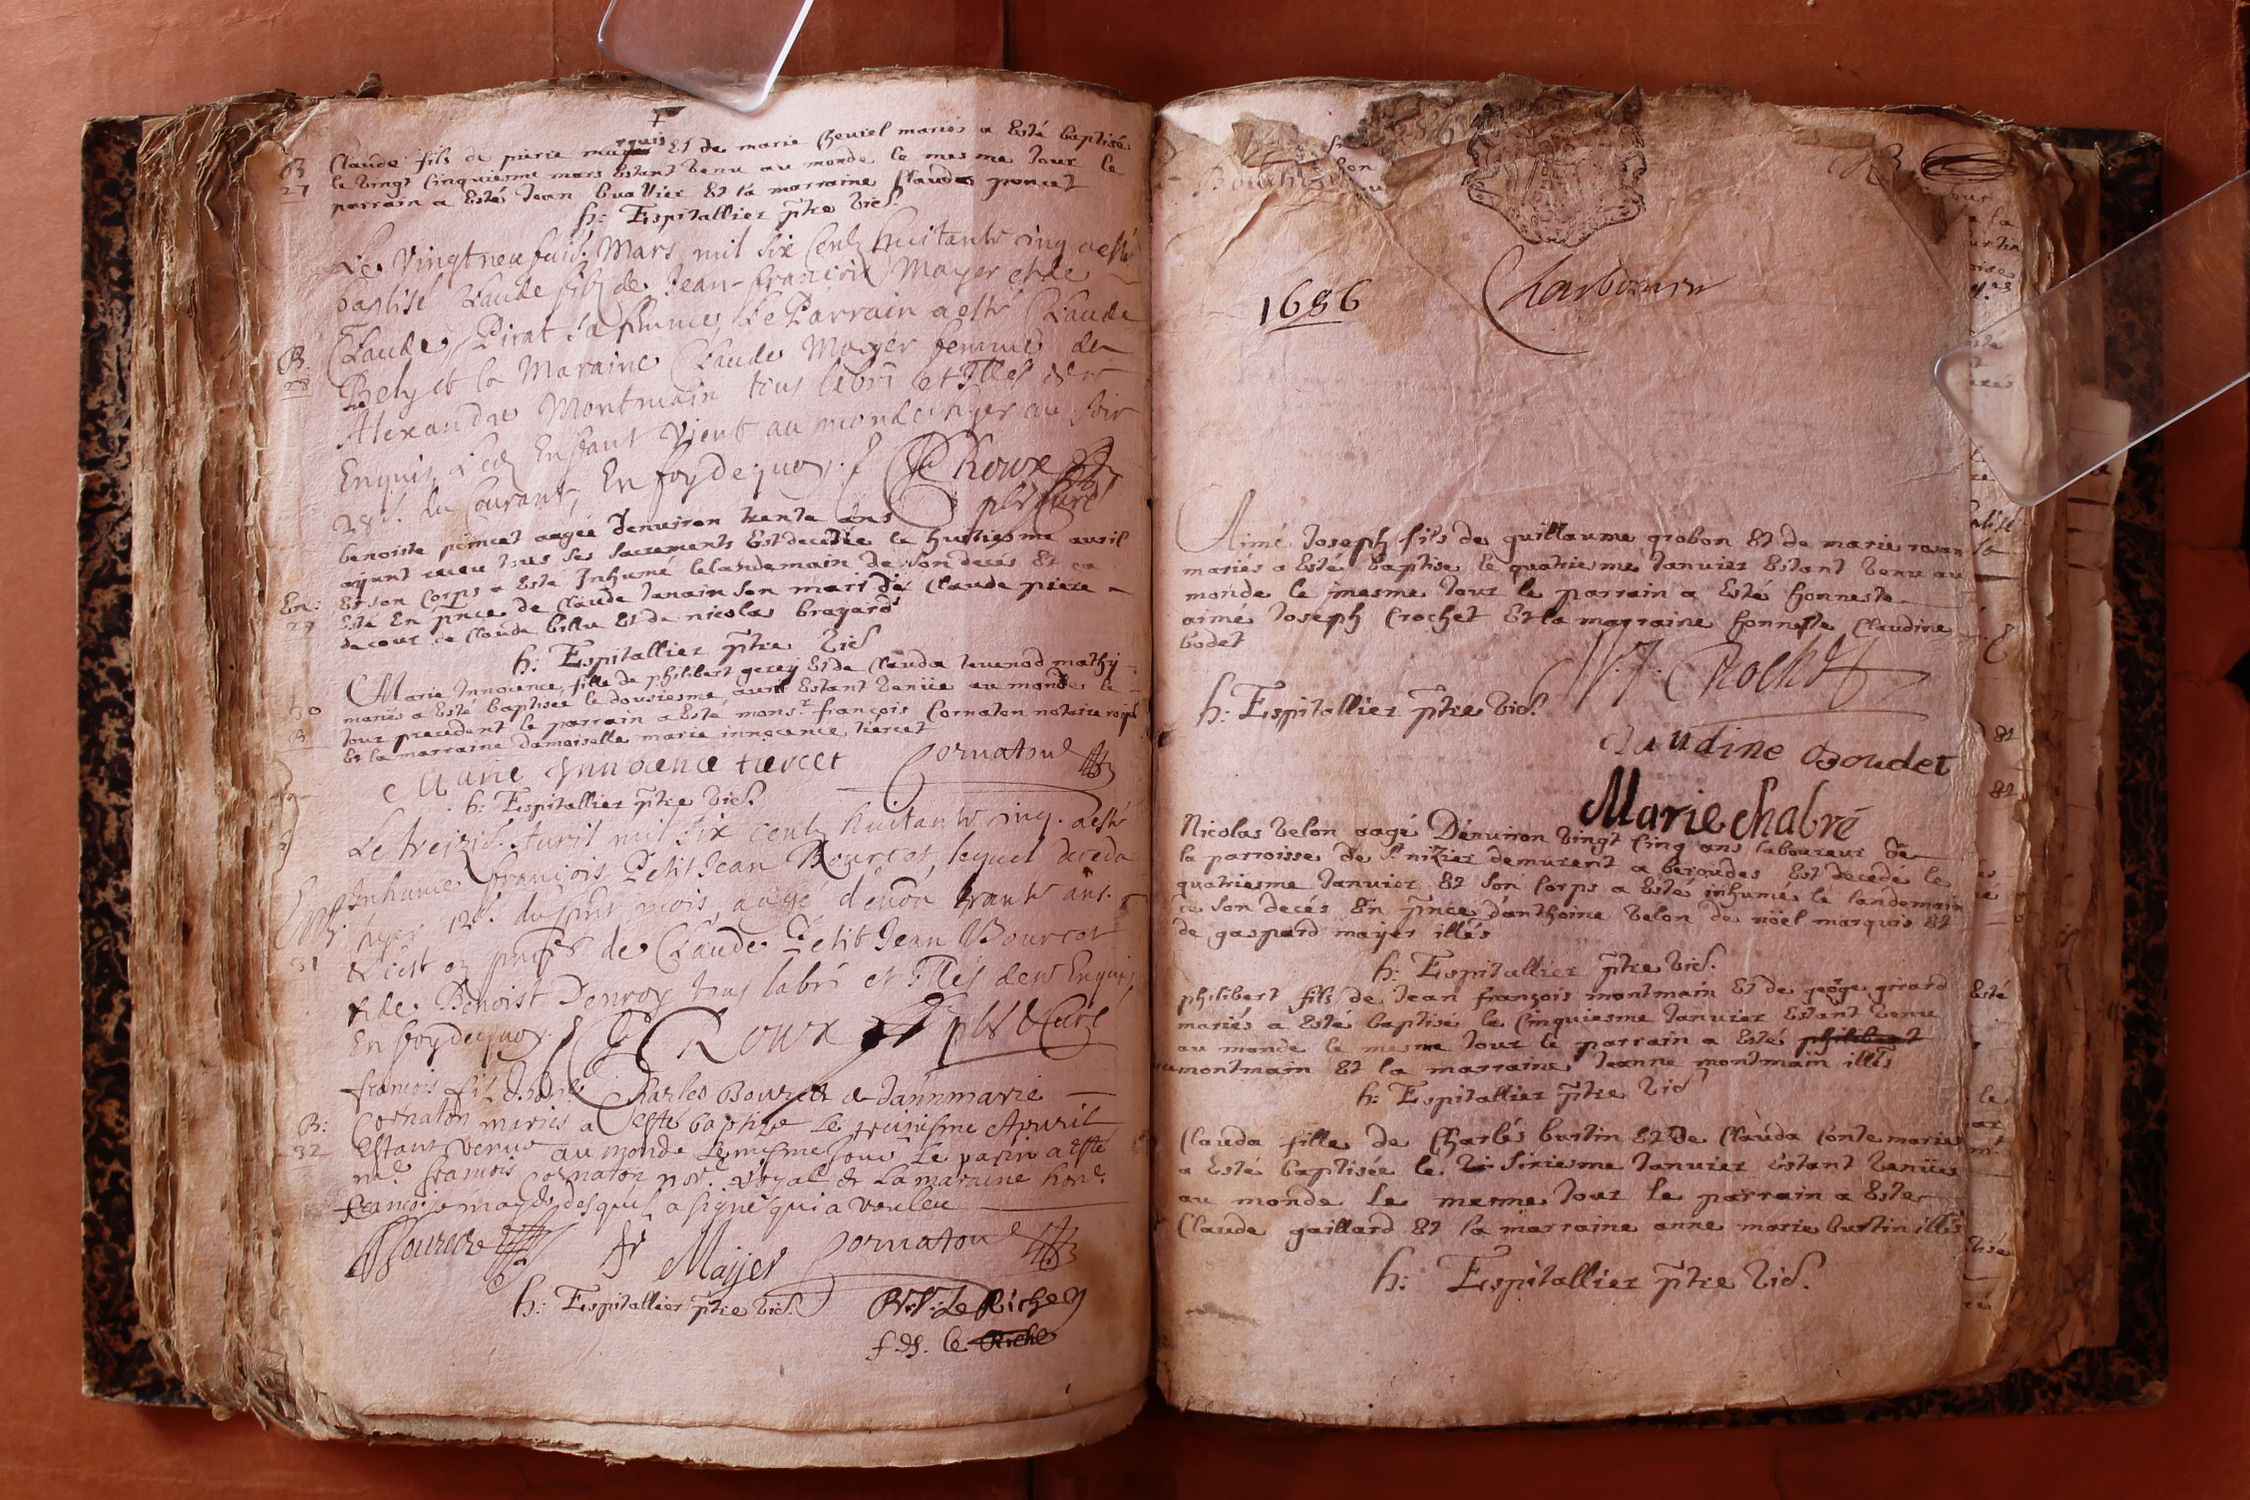 B
27
Claude fils de pierre marquis Et de marie Cheviel mariés a Esté baptisé
le vingt Cinquiesme mars Estant venu au monde le mesme Jour le
parrain a Esté Jean buattier Et la marraine Claude poncet
h: Espitallier ptre vic.
Le Vingtneufvie. Mars mil Six Centz huitante cinq a esté
baptisé Claude filz de Jean-françois Mayer et de
Claude Pirat sa femme, Le Parrain a esté Claude
Bely et la Maraine Claude Mayer femme de
Alexandre Montmain tous labrs et Illes de ce
Enquis, Led Enfant Vient au monde hyer au soir
28e. du Courant, En foy de quoy.
G Roux
pbre Curé
B.
28
benoiste poncet aagée Denviron trente ans
ayant receu tous ses sacrements Est decedée le huitiesme avril
Et son Corps a Esté Inhumé le landemain de son decés Et ca
Esté En pnce de Claude Janain son mari de Claude pierre
decour de Claude billu Et de nicolas brayard
h: Espitallier ptre vic
En:
29
Marie Innocence fille de philibert gerey Et de Clauda tevenod mathy
mariés a Esté baptisee le dousiesme avril Estant venüe au monde le
Jour precedent le parrain a Esté monsr. françois Cornaton notaire royal
Et la marraine damoiselle marie innocence tiercet
30
B
Marie Innocence tiercet Cornaton
h: Espitallier ptre vic.
Le treizie. Avril mil six centz huitante cinq. a esté
Inhumé françois Petit Jean Bourcet, lequel deceda
hyer 12e. du pnt mois, aagé d'envon trante ans.
& c'est en pnce de Claude Petit Jean Bourcet
& de Benoist Denroy tous labrs et Illes de ce Enquis
En foy de quoy.
G Roux pbre Curé
31
francois fil dhon. Charles Bourcet & dannmarie
Cornaton mariés a esté baptize Le treisiesme Apvril
Estant venu au monde Le mesme Jour Le parin a esté
me. francois Cornaton nore. royal & La maraine hone.
francoise mayer desquels a signé qui a vouleu
B:
32
Bourcet fr Mayer Cornaton
h: Espitallier ptre vic. Le Riche
f. ds. le Riche
1686
Charbonnier
Aimé Joseph fils de guillaume grobon Et de marie ravan
mariés a Esté baptise le quatriesme Janvier Estant venu au
monde le mesme Jour le parrain a Esté honneste
aimé Joseph Crochet Et la marraine honneste Claudine
bodet
A. J. Crochet
h: Espitallier ptre vic.
Claudine Boudet
Marie Chabré
Nicolas velon aagé Denviron vingt Cinq ans laboureur de
la parroisse de St nizier demurent a beroudes Est decede le
quatriesme Janvier Et son Corps a Esté inhumé le landemain
de son decés En pnce danthoine velon de nöel marquis Et
de gaspard mayer illés
h: Espitallier ptre vic.
philibert fils de Jean françois montmain Et de geöge girard
mariés a Esté baptisé le Cinquiesme Janvier Estant venu
au monde le mesme Jour le parrain a Esté philibert
montmain Et la marraine Jeanne montmain illés
h: Espitallier ptre vic
Clauda fille de Charlés burtin Et de Clauda Conte mariés
a Esté baptisée le Sixiesme Janvier Estant venüe
au monde le mesme Jour le parrain a Esté
Claude gaillard Et la marraine anne marie burtin illés
h: Espitallier ptre vic.